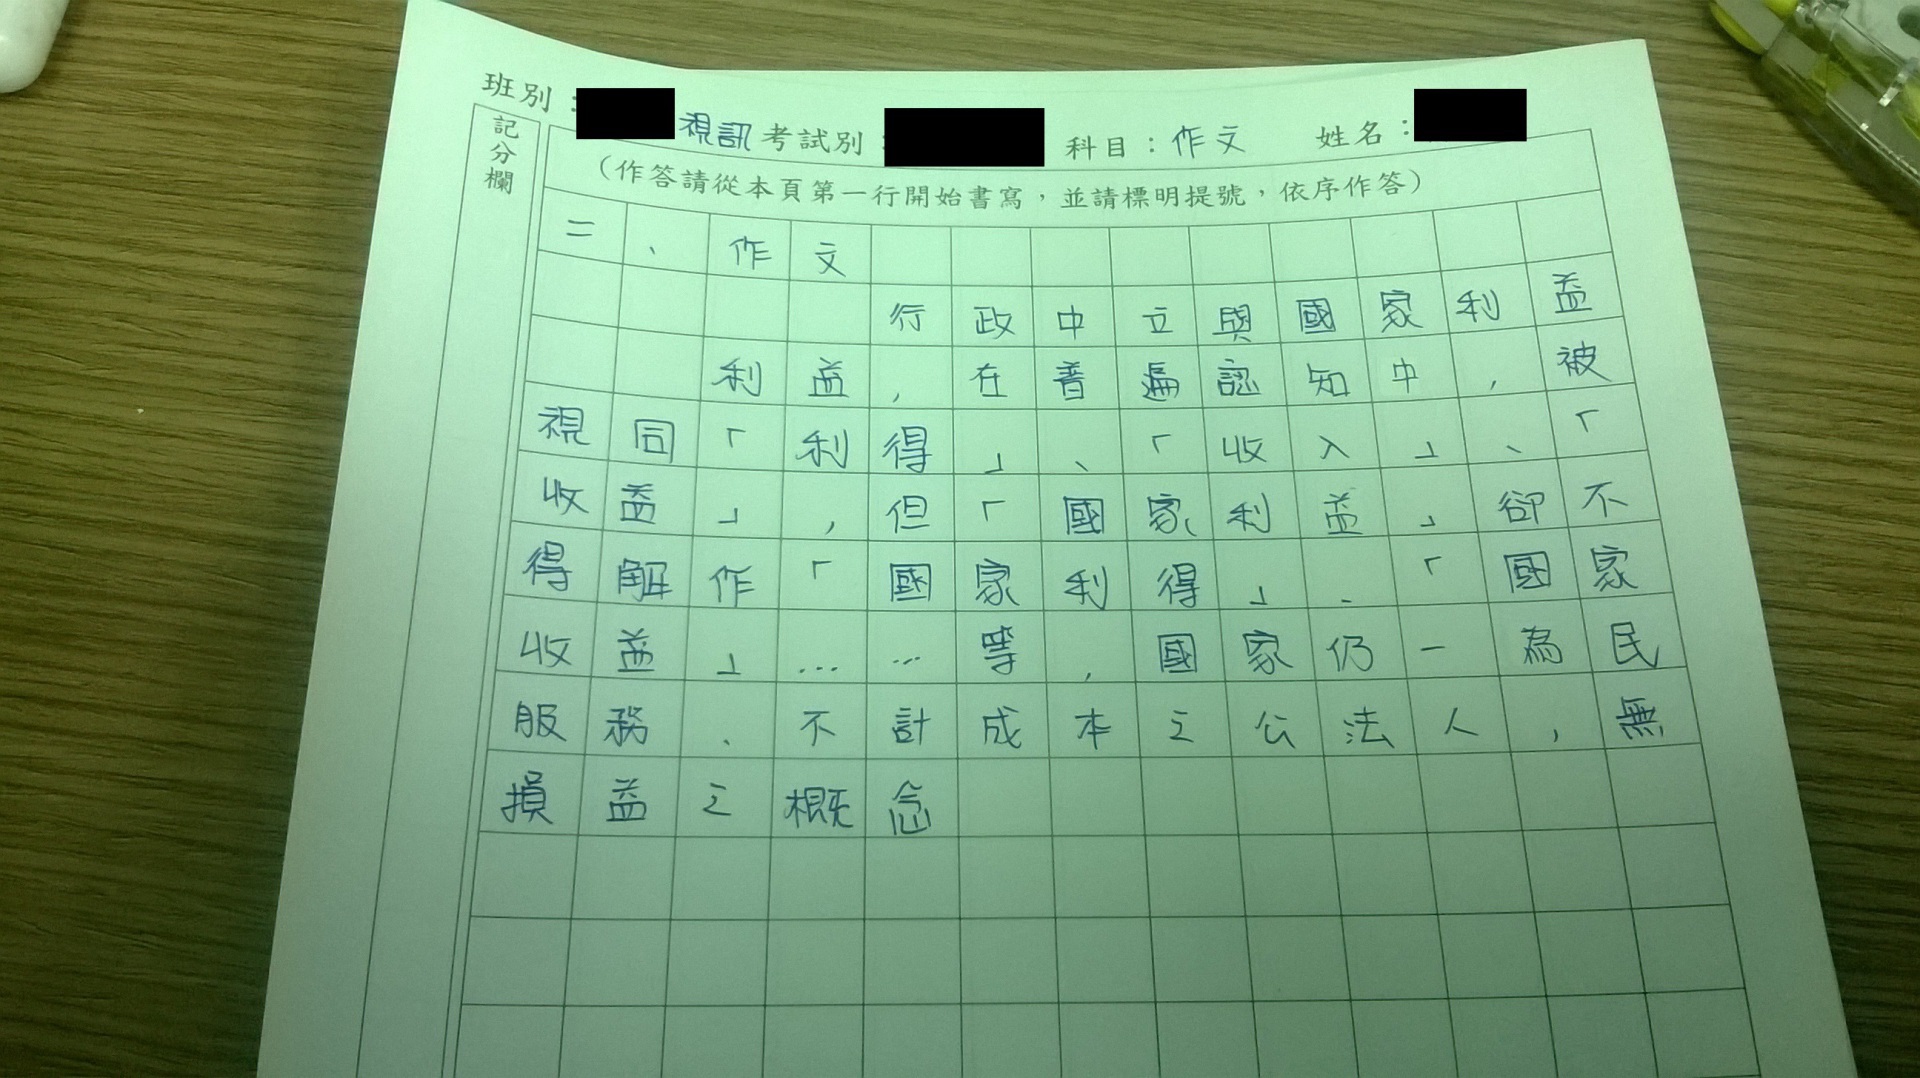 班別： 視訊 考試別： 科目：作文 姓名：
記分欄
（作答請從本頁第一行開始書寫，並請標明提號，依序作答）
二、作文
行政中立與國家利益
利益，在普遍認知中，被
視同「利得」、「收入」、「
收益」，但「國家利益」卻不
得解作「國家利得」、「國家
收益」……等，國家仍一為民
服務、不計成本之公法人，無
損益之概念